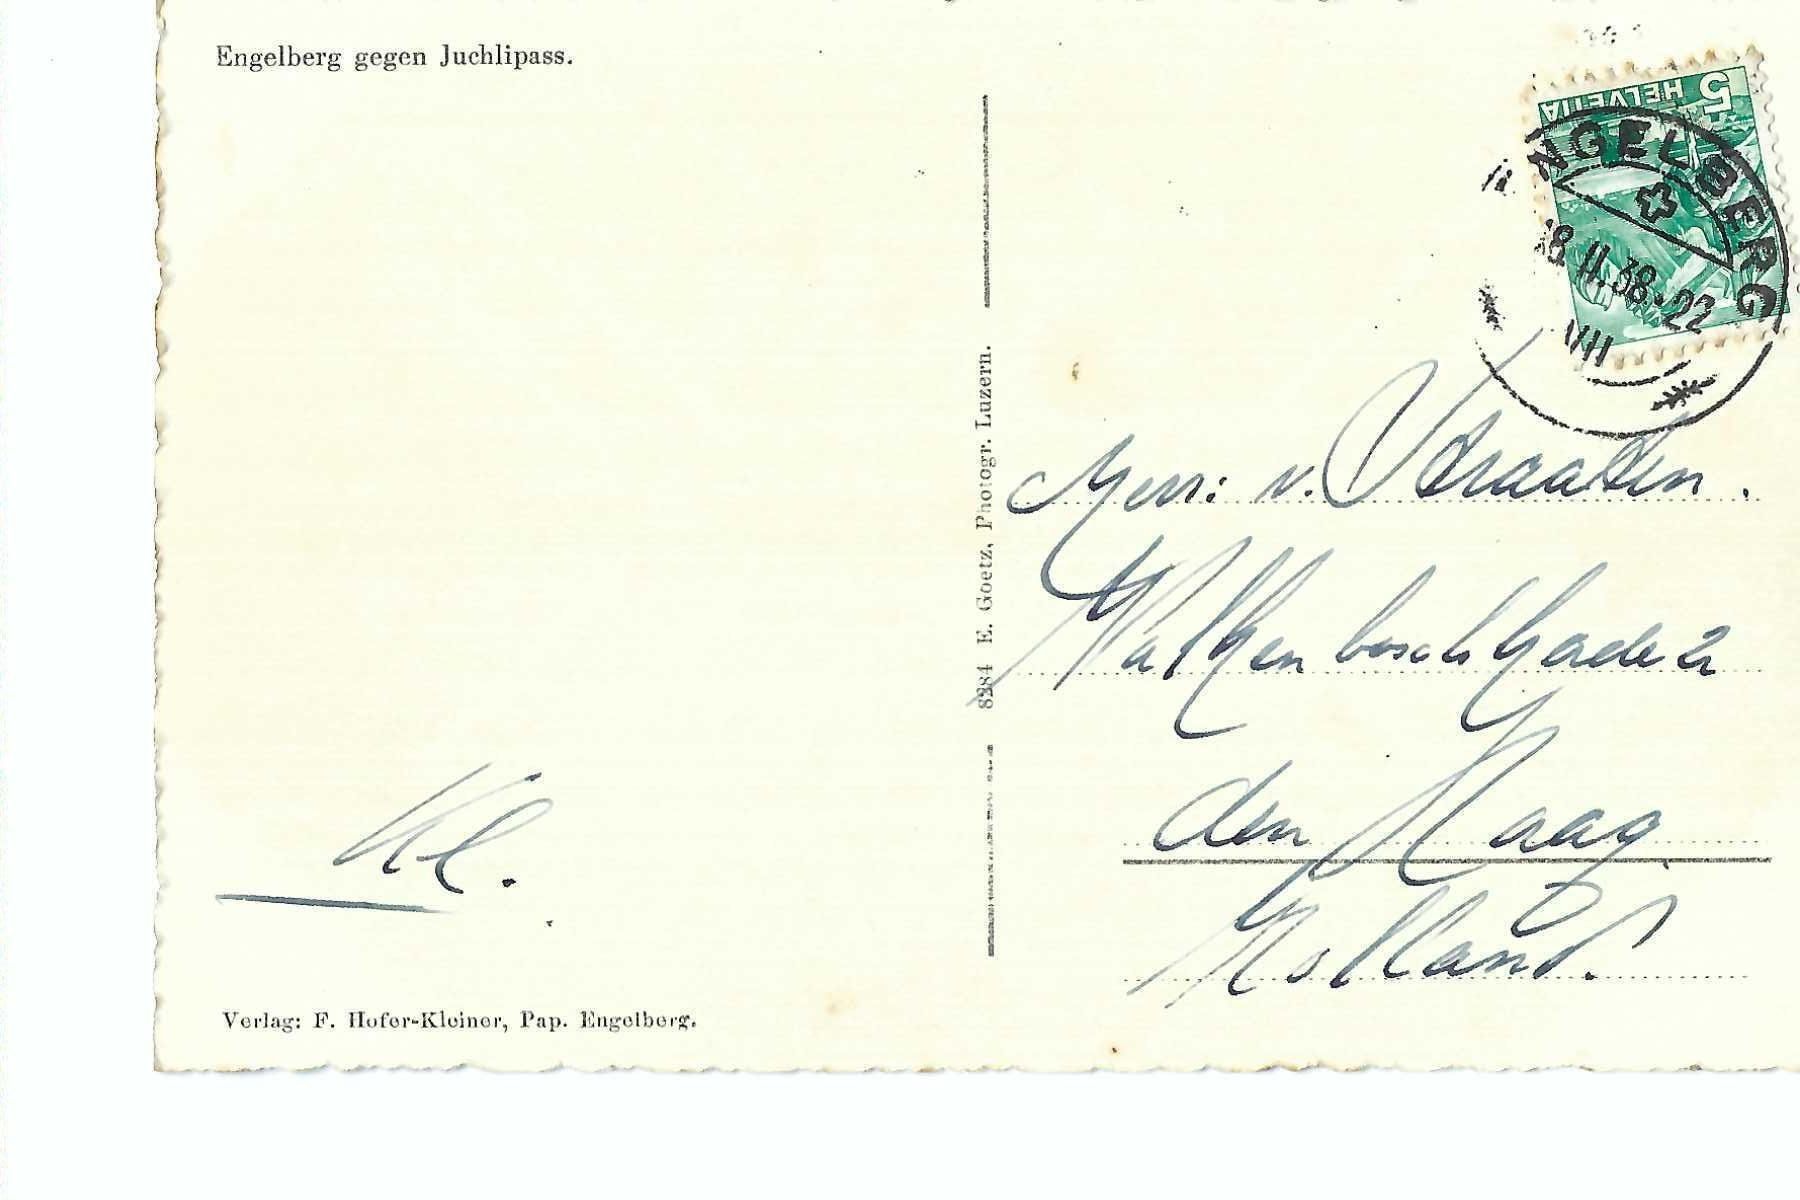 Engelberg gegen Juchlipass.
5
HELVETIA
ENGELBERG
18.II.38.-22
VIII
8284 E. Goetz, Photogr. Luzern.
Herr: v. Straaten.
Valkenboschkade 2
den Haag.
Holland.
Kl.
Verlag: F. Hofer-Kleiner, Pap. Engelberg.